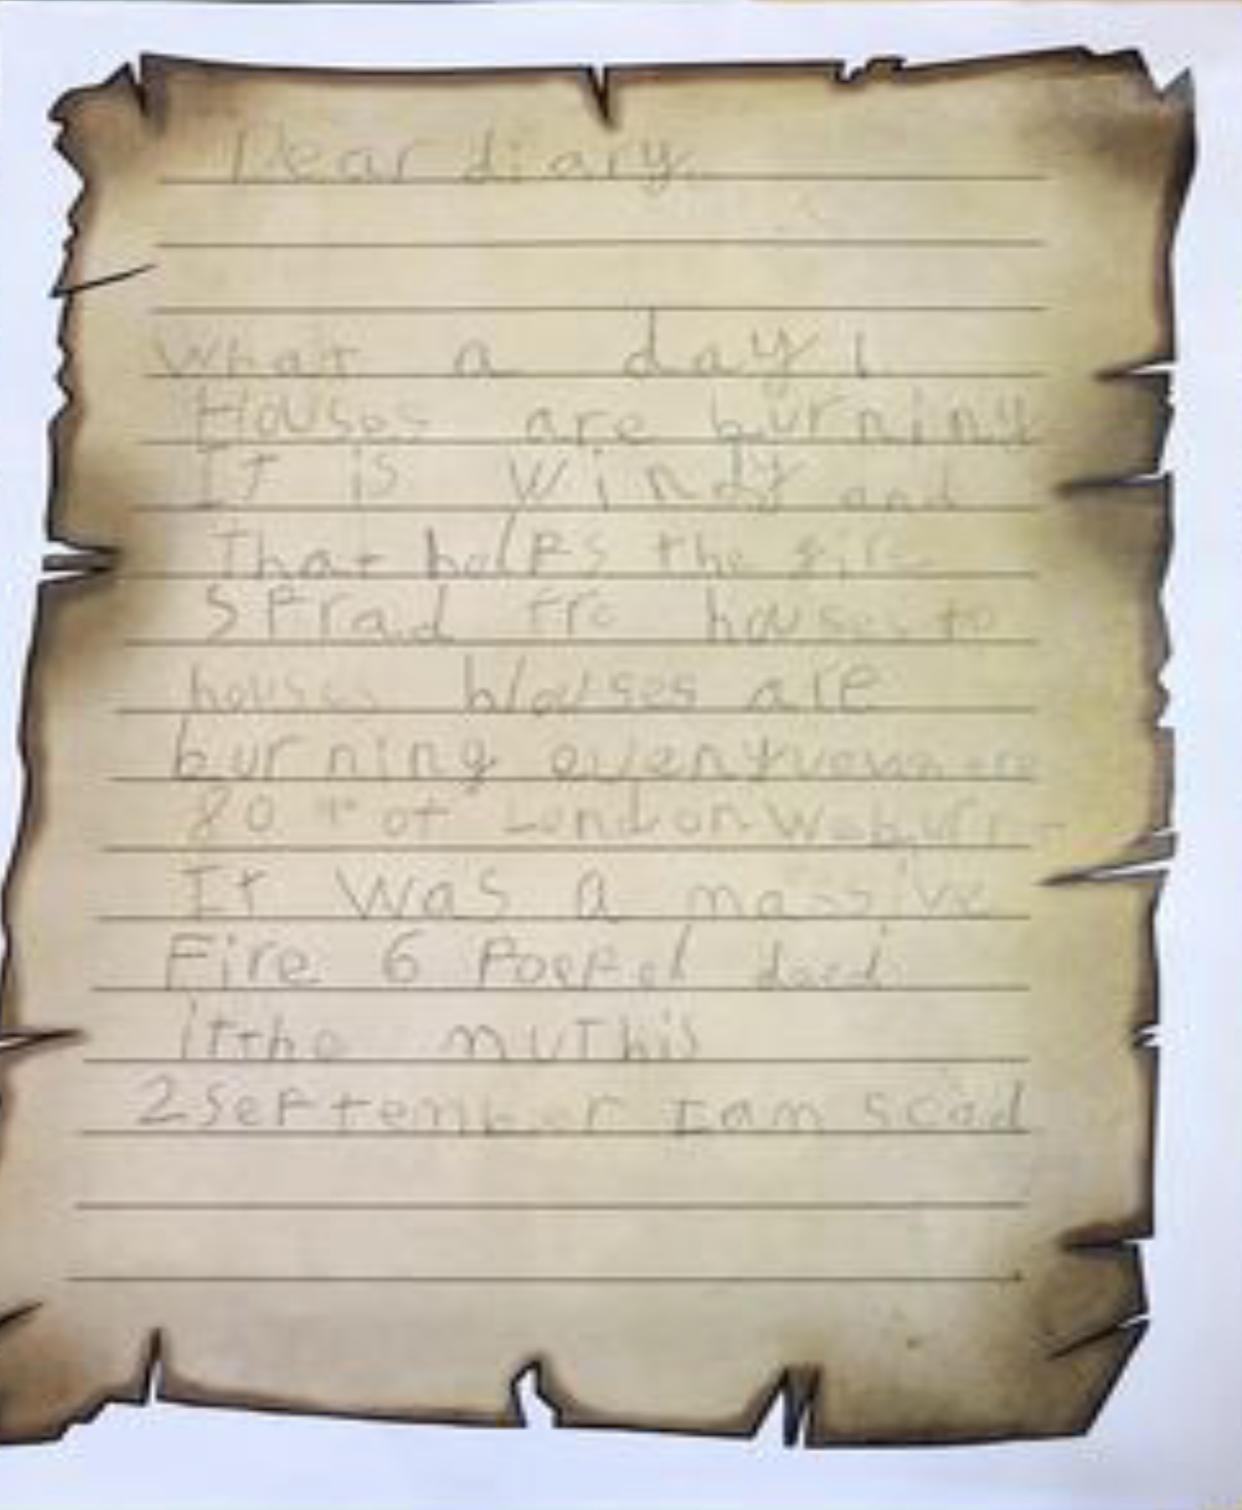 Dear diary.
What a day!
Houses are burning
It is windy and
That helps the fire
Sprad fro houses to
houses blouses are
burning
80 of London
It was a massive
Fire 6 Poepel
itthe muthis
2 September I am scad